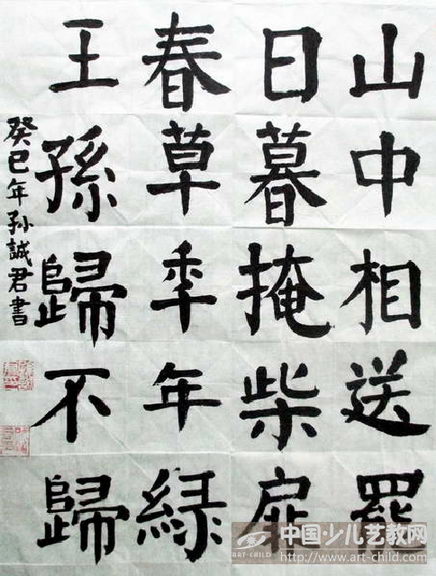 山中相送罷
日暮掩柴扉
春草秊年綠
王孫歸不歸
癸巳年孙誠君書
中国少儿艺教网
ART-CHILD
http://www.art-child.com